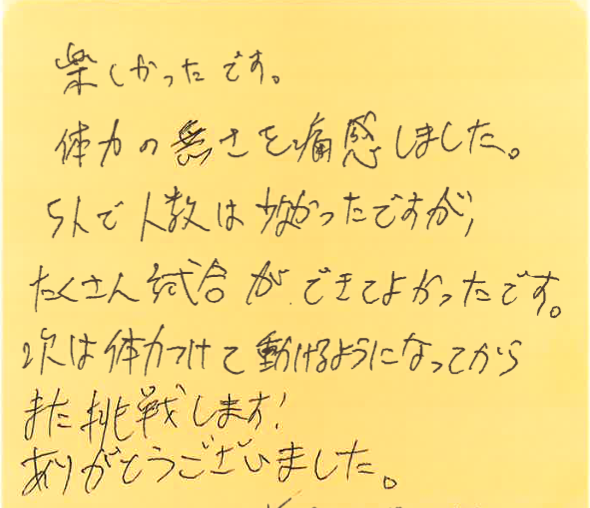 楽しかったです。
体力の無さを痛感しました。
5人で人数は少なかったですが、
たくさん試合ができてよかったです。
次は体力つけて動けるようになってから
また挑戦します!
ありがとうございました。